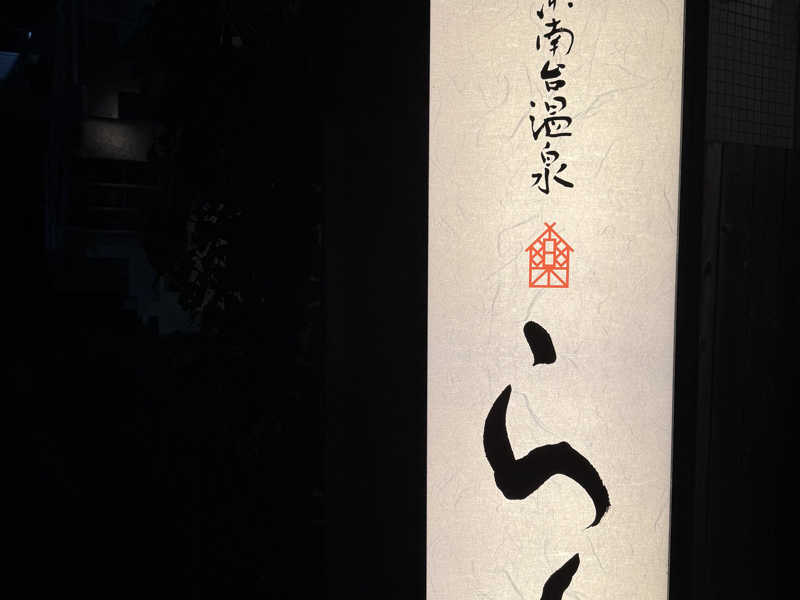 南台温泉
ら